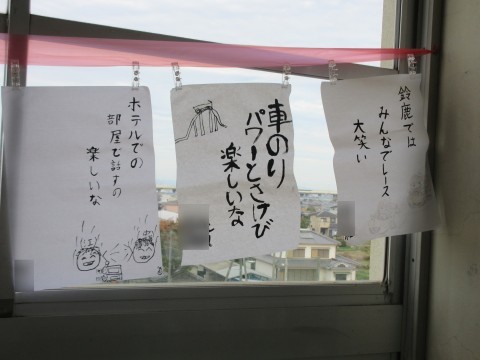 鈴鹿では
みんなでレース
大笑い
車のり
パワーとさけび
楽しいな
ホテルでの
部屋で話すの
楽しいな